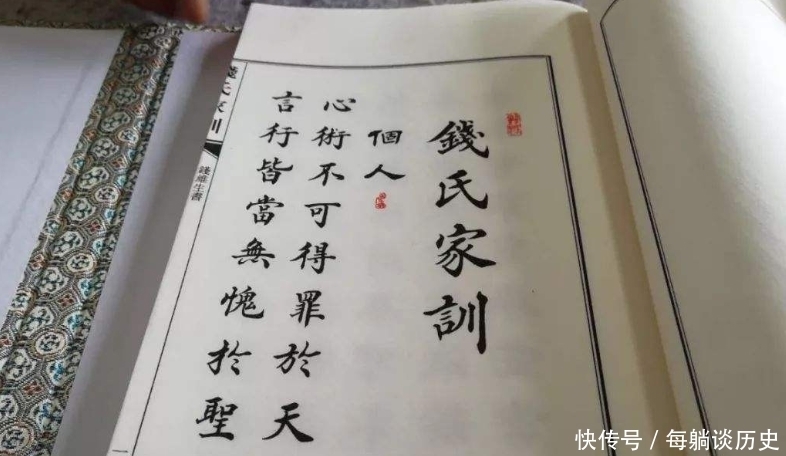 錢氏家訓
個人
心術不可得罪於天
言行皆當無愧於聖
錢氏家訓
錢維生書
一
快传号/每躺谈历史